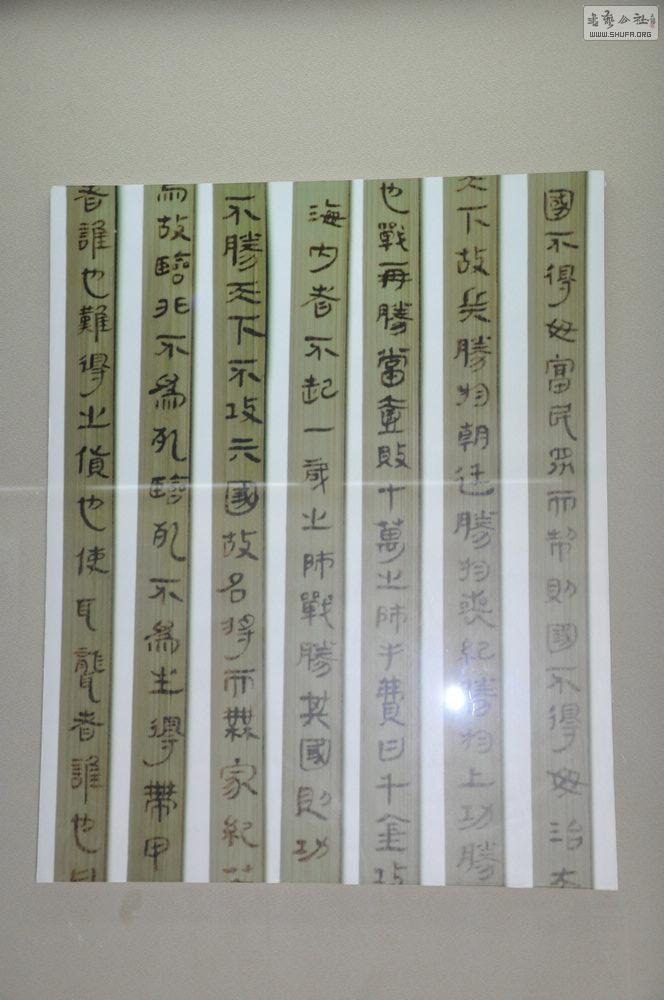 國不得毋富民眾而制則國不得毋治
天下故兵勝於朝廷勝於喪紀勝於上功勝
也戰再勝當壹敗十萬之師半費日千金
海內者不起一歲之師戰勝其國則功
不勝天下不攻六國故名將而無家紀
而故臨北不為死臨死不為生得帶甲
者誰也難得之貨也使耳聾者誰也曰
書藝公社
WWW.SHUFA.ORG